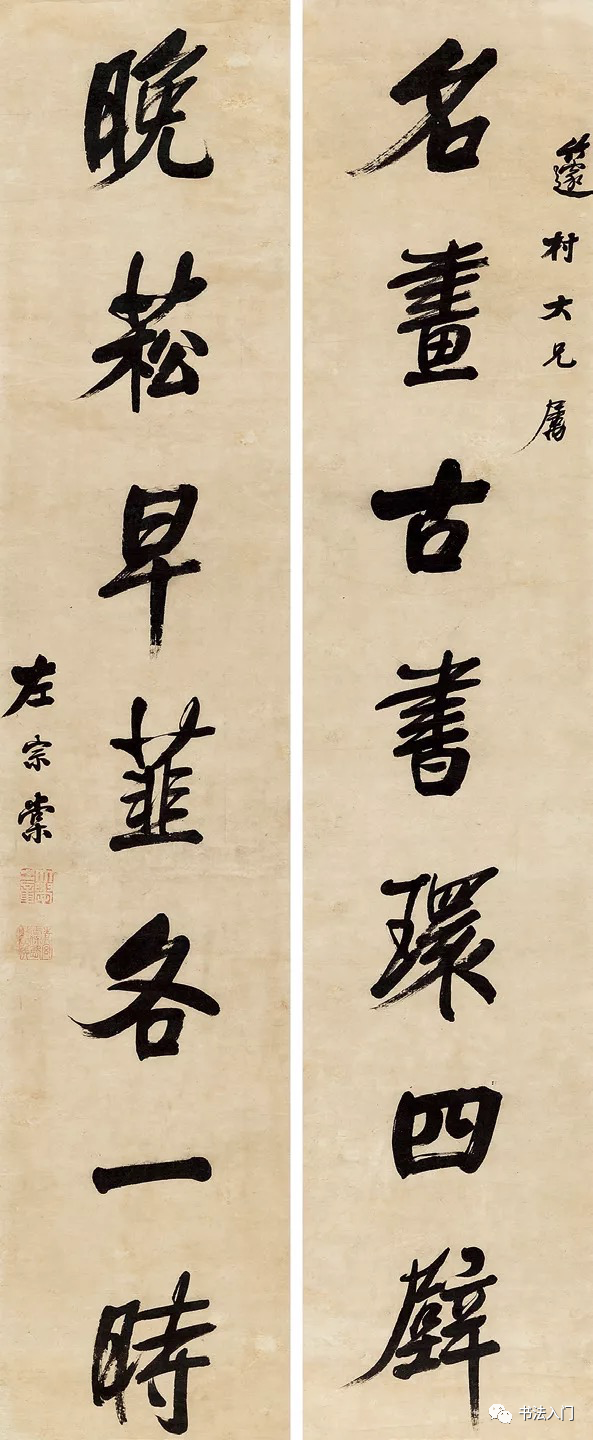 籧村大兄屬
名畫古書環四壁
晚菘早韮各一時
左宗棠
书法入门